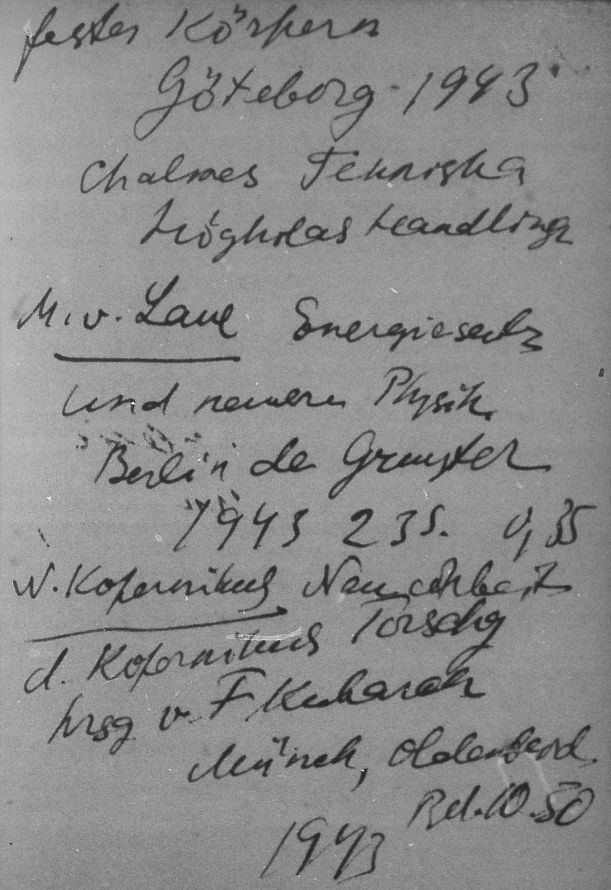 fester Körpern
Göteborg 1943
Chalmers Tekniska
Högholas Handlingr
M. v. Laue Energiesatz
und neuere Physik.
Berlin de Gruyter
1943 23 S. 0,35
N. Kopernikus Neue Arbeit
d. Kopernikus Forschg
hrsg v. F Kubach
Münch, Oldenbourd.
Rd. 10.50
1943